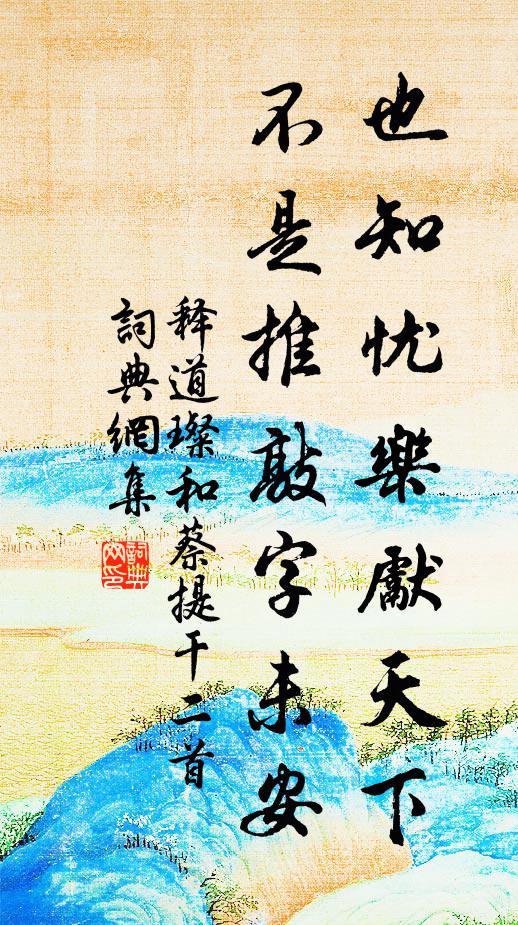 也知忧樂關天下
不是推敲字未安
释道璨和蔡提干二首
詞典網集
詞典網印